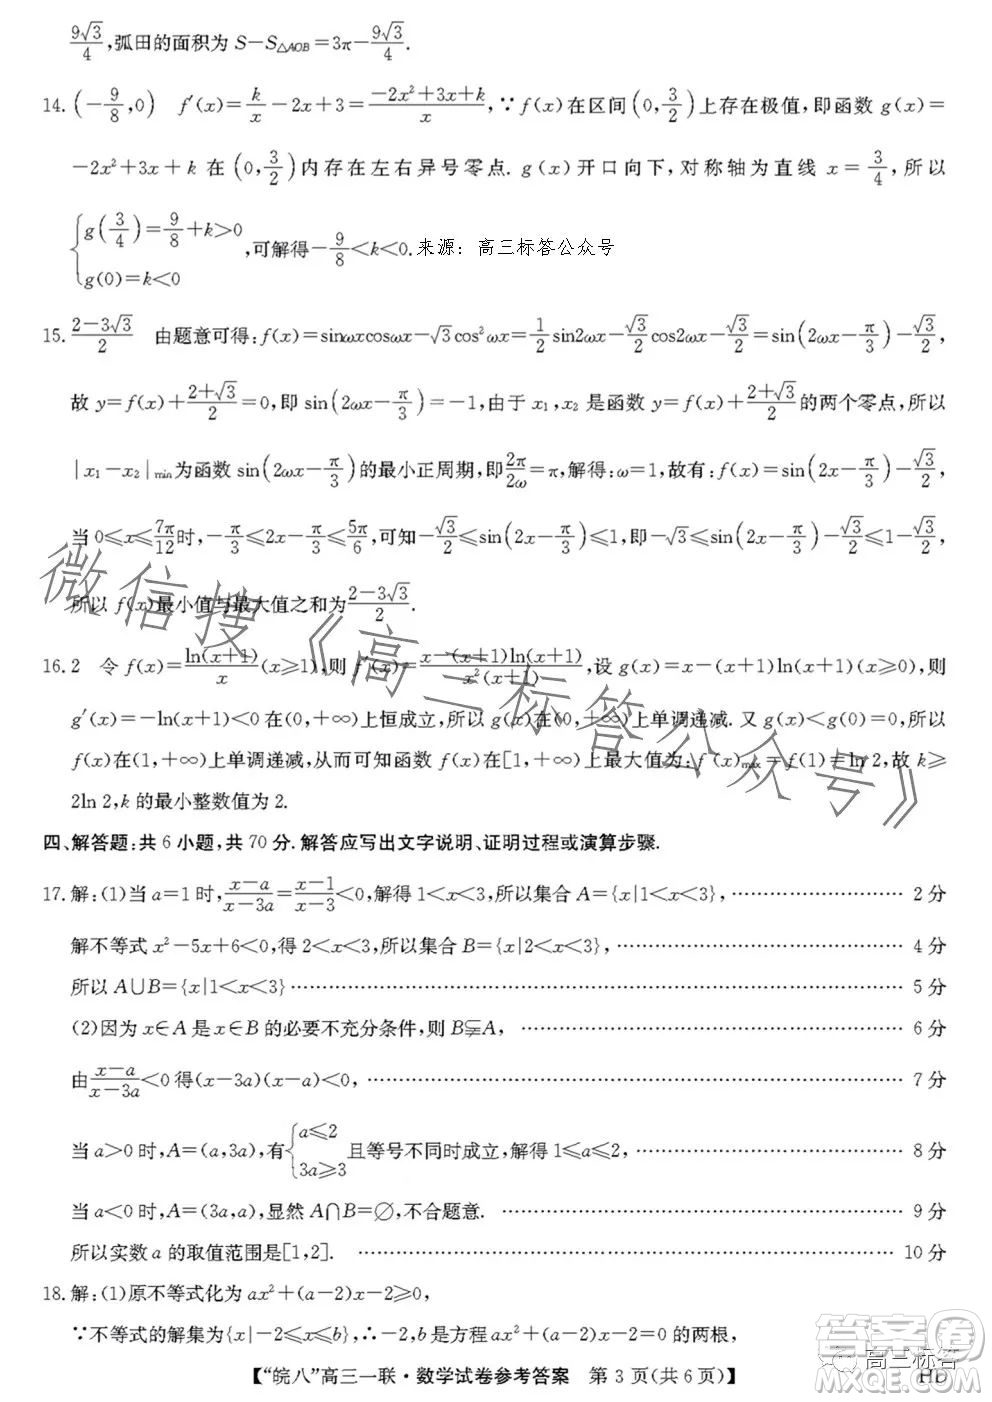 9√3/4,弧田的面积为 S−S△AOB=3π−9√3/4.
14.(−9/8,0) f′(x)=k/x−2x+3=(−2x²+3x+k)/x,∵f(x)在区间(0,3/2)上存在极值,即函数 g(x)=
−2x²+3x+k 在(0,3/2)内存在左右异号零点.g(x)开口向下,对称轴为直线 x=3/4,所以
{g(3/4)=9/8+k>0
g(0)=k<0 ,可解得−9/8<k<0.来源：高三标答公众号
15.(2−3√3)/2 由题意可得:f(x)=sinωxcosωx−√3cos²ωx=1/2sin2ωx−√3/2cos2ωx−√3/2=sin(2ωx−π/3)−√3/2,
故 y=f(x)+(2+√3)/2=0,即 sin(2ωx−π/3)=−1,由于 x₁,x₂ 是函数 y=f(x)+(2+√3)/2的两个零点,所以
|x₁−x₂|min为函数 sin(2ωx−π/3)的最小正周期,即2π/2ω=π,解得:ω=1,故有:f(x)=sin(2x−π/3)−√3/2,
当 0≤x≤7π/12时,−π/3≤2x−π/3≤5π/6,可知−√3/2≤sin(2x−π/3)≤1,即−√3≤sin(2x−π/3)−√3/2≤1−√3/2,
所以 f(x)最小值与最大值之和为(2−3√3)/2.
16.2 令 f(x)=ln(x+1)/x(x≥1),则 f′(x)=(x−(x+1)ln(x+1))/(x²(x+1)),设 g(x)=x−(x+1)ln(x+1)(x≥0),则
g′(x)=−ln(x+1)<0 在(0,+∞)上恒成立,所以 g(x)在(0,+∞)上单调递减.又 g(x)<g(0)=0,所以
f(x)在(1,+∞)上单调递减,从而可知函数 f(x)在[1,+∞)上最大值为:f(x)max=f(1)=ln 2,故 k≥
2ln 2,k 的最小整数值为 2.
四、解答题:共 6 小题,共 70 分.解答应写出文字说明、证明过程或演算步骤.
17.解:(1)当 a=1 时,(x−a)/(x−3a)=(x−1)/(x−3)<0,解得 1<x<3,所以集合 A={x|1<x<3},………………… 2 分
解不等式 x²−5x+6<0,得 2<x<3,所以集合 B={x|2<x<3},………………… 4 分
所以 A∪B={x|1<x<3}………………… 5 分
(2)因为 x∈A 是 x∈B 的必要不充分条件,则 B⫋A,………………… 6 分
由(x−a)/(x−3a)<0 得(x−3a)(x−a)<0,………………… 7 分
当 a>0 时,A=(a,3a),有{a≤2
3a≥3 且等号不同时成立,解得 1≤a≤2,………………… 8 分
当 a<0 时,A=(3a,a),显然 A∩B=∅,不合题意.………………… 9 分
所以实数 a 的取值范围是[1,2].………………… 10 分
18.解:(1)原不等式化为 ax²+(a−2)x−2≥0,
∵不等式的解集为{x|−2≤x≤b},∴−2,b 是方程 ax²+(a−2)x−2=0 的两根,
【“皖八”高三一联·数学试卷参考答案 第 3 页(共 6 页)】 HD
微信搜《高三标答公众号》
答案圈
高三标答
MXQE.COM